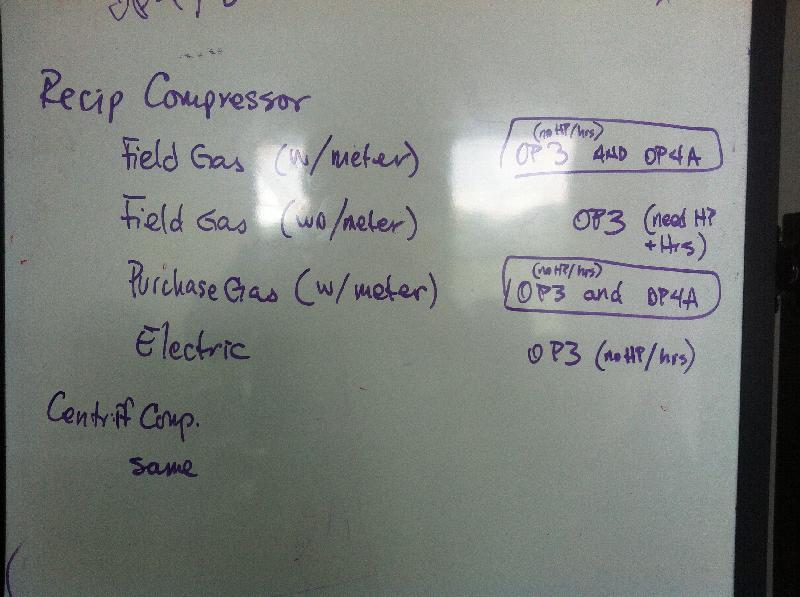 Recip Compressor
Field Gas (w/meter) (no HP/hrs) OP3 AND OP4A
Field Gas (wo/meter) OP3 (need HP + Hrs)
Purchase Gas (w/meter) (no HP/hrs) OP3 and OP4A
Electric OP3 (no HP/hrs)
Centrif Comp.
same